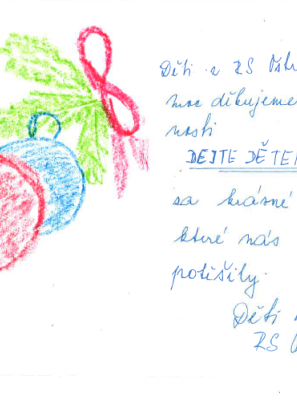 Děti z ZS Ostr
moc děkujeme
nosti
DEJTE DĚTEM
za krásné
které nás
potěšily.
Děti
ZS